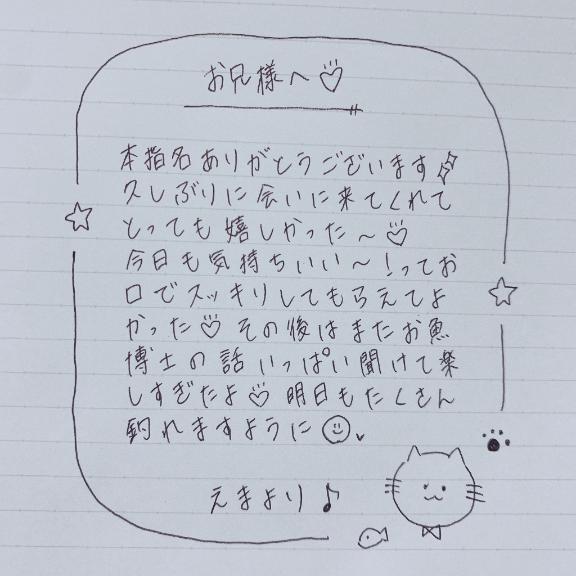 お兄様へ♡
本指名ありがとうございます
久しぶりに会いに来てくれて
とっても嬉しかった〜♡
今日も気持ちいい〜！ってお
口でスッキリしてもらえてよ
かった♡その後はまたお魚
博士の話いっぱい聞けて楽
しすぎたよ♡明日もたくさん
釣れますように☺
えまより♪